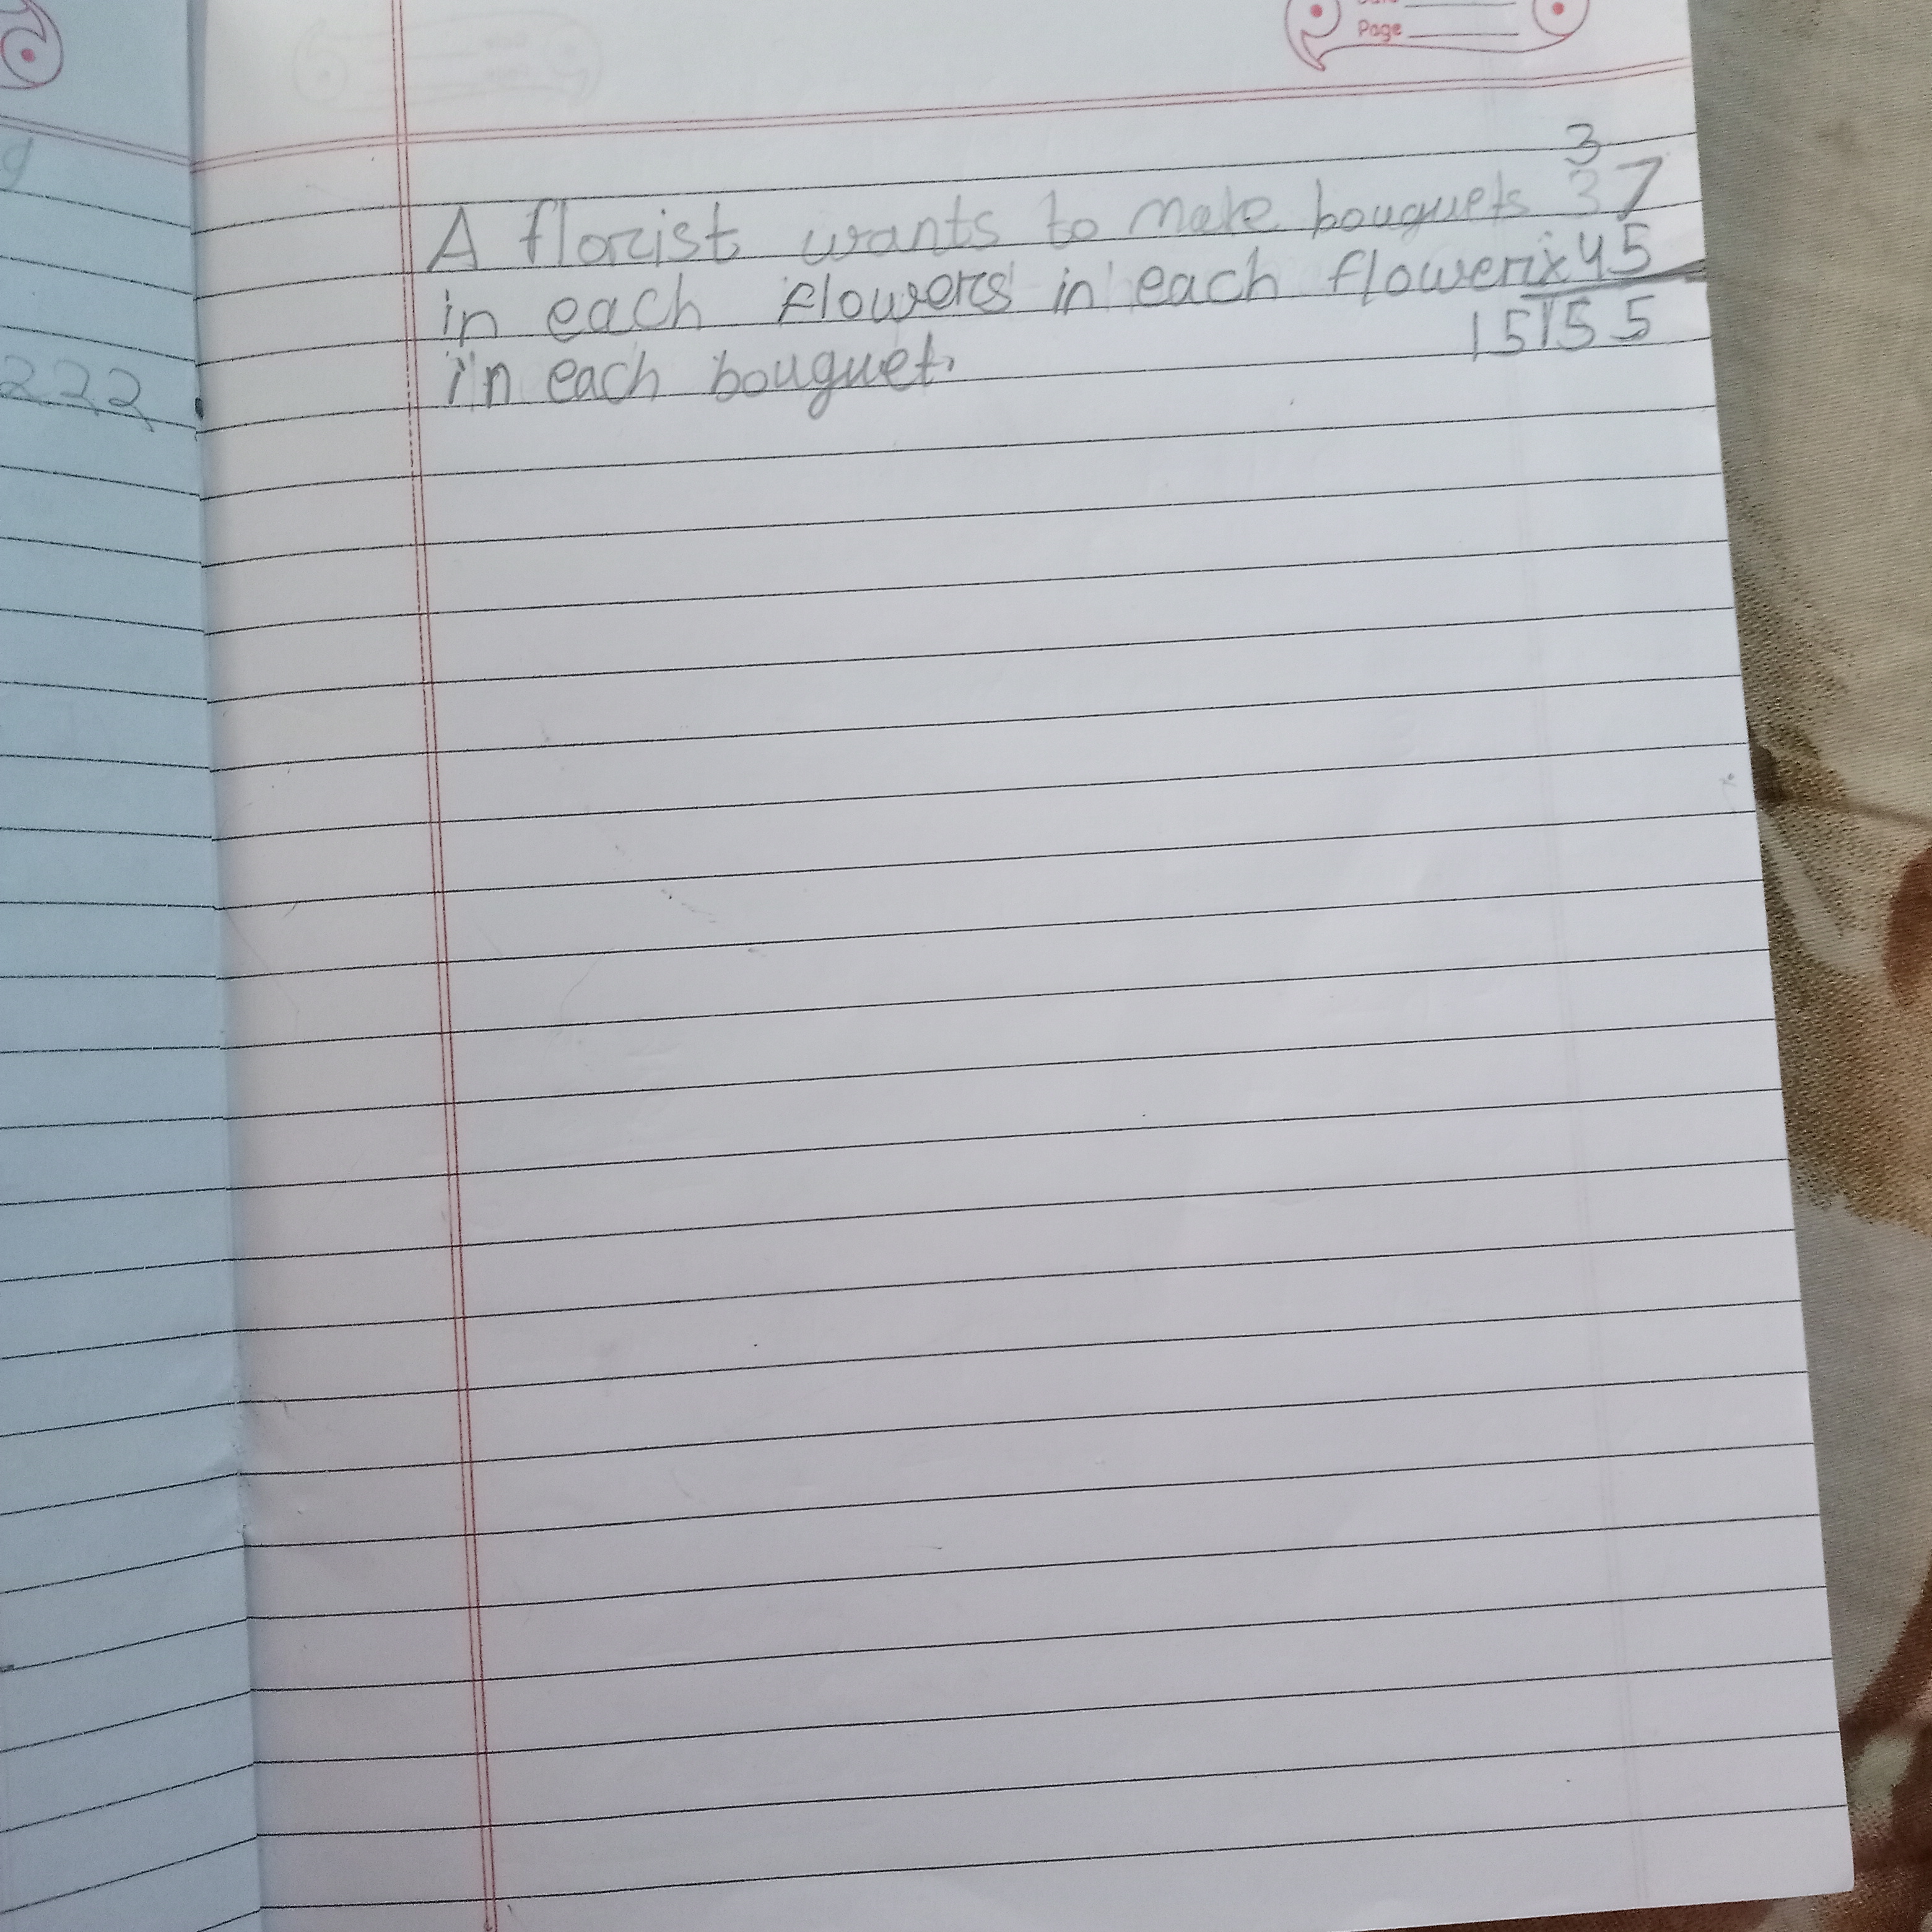 Page
3
A florist wants to make bouguets 37
in each flowers in each flower x45
in each bouguet. 15155
222